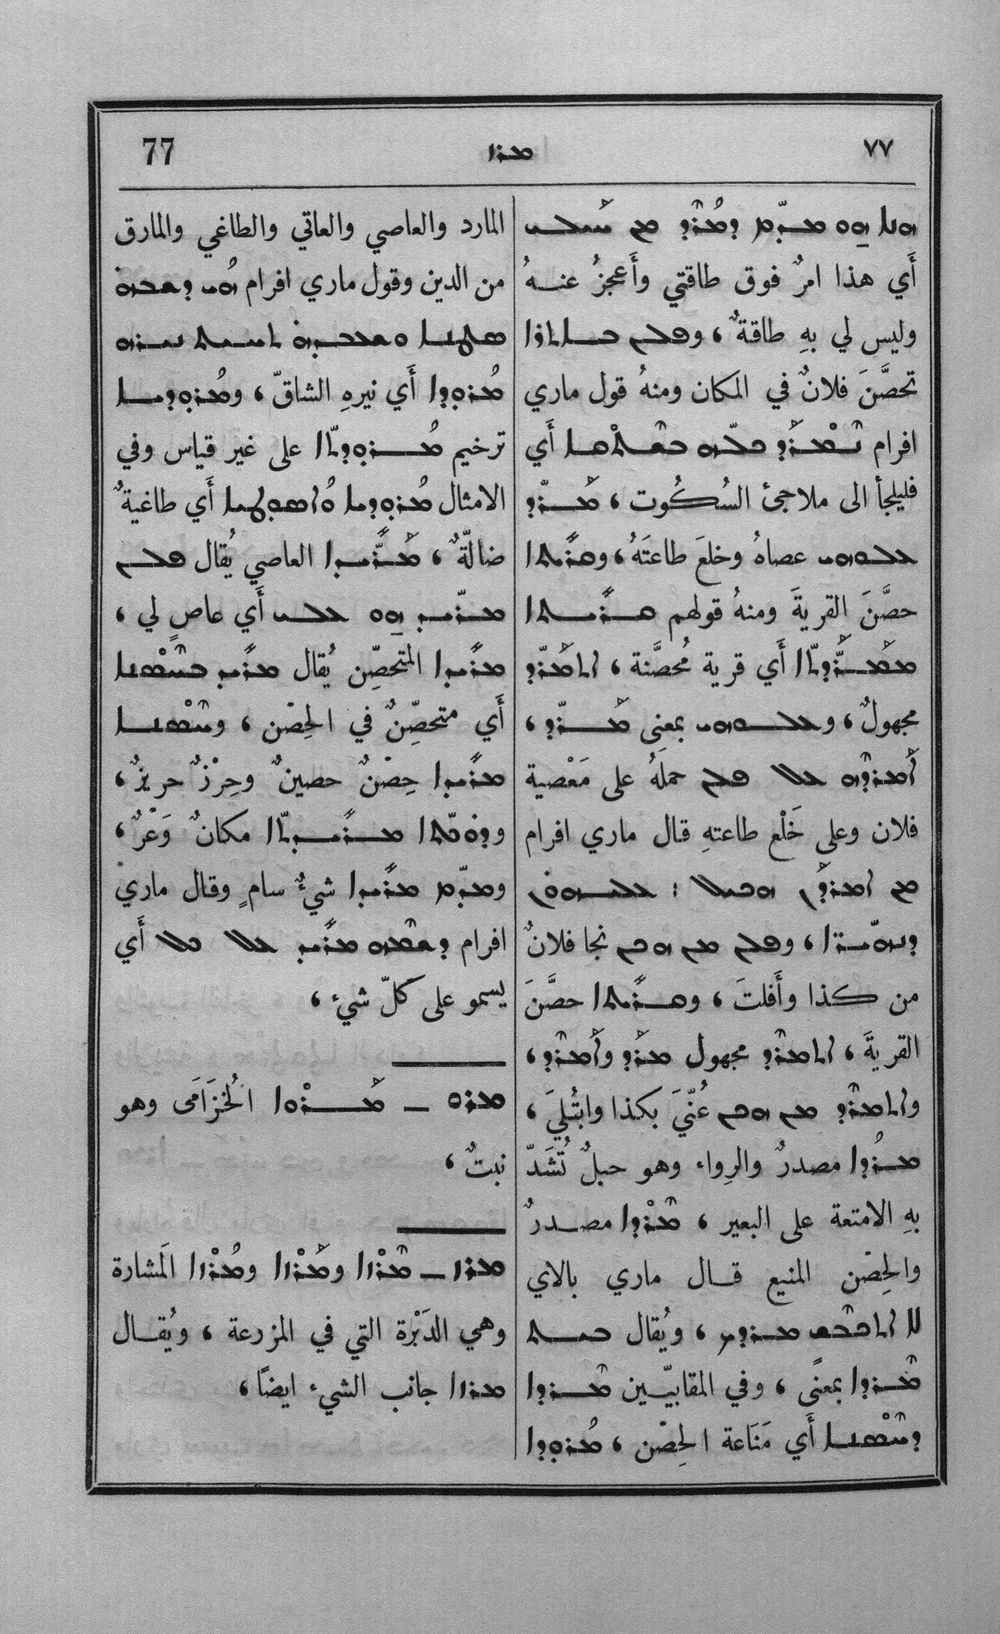 ٧٧ ܡܪܐ 77
ܡܕܡ ܕܡܪܕ ܡܢ
أَي هذا امرٌ فوق طاقتي وأَعجزُ عنهُ
وليس لي بهِ طاقةٌ ، وܦܠܢ ܒܐܬܪܐ
تحصَّنَ فلانٌ في المكان ومنهُ قول ماري
افرام ܢܡܪܕ أَي
فليلجأ الى ملاجئ السُكُوت ، ܡܪܕ
ܥܠܘܗܝ عصاهُ وخلعَ طاعتَهُ ، وܩܪܝܬܐ
حصَّنَ القريةَ ومنهُ قولهم ܩܪܝܬܐ
ܡܡܪܕܬܐ أَي قرية مُحصَّنة ، ܐܬܡܪܕ
مجهولٌ ، وܥܠܘܗܝ بمعنى ܡܪܕ ،
ܐܡܪܕܗ ܥܠ ܦܠܢ حملهُ على مَعْصية
فلان وعلى خَلْع طاعتهِ قال ماري افرام
ܡܢ
وܦܠܢ ܡܢ ܗܟܢ نجا فلانٌ
من كذا وأَفلتَ ، وܩܪܝܬܐ حصَّنَ
القريةَ ، ܐܬܡܪܕ مجهول ܡܪܕ وܐܡܪܕ ،
وܐܬܡܪܕ ܡܢ ܗܟܢ عُنّيَ بكذا وابتُليَ ،
ܡܪܕܐ مصدرٌ والرِواء وهو حبلٌ تُشَدّ
بهِ الامتعة على البعير ، ܡܪܕܐ مصدرٌ
والحِصْن المنيع قال ماري بالاي
ܠܐ ܡܪܕܝ ، ويُقال ܒܝܬ
ܡܪܕܐ بمعنًى ، وفي المقابيّين ܡܪܕܐ
ܕܚܣܢܐ أَي مَنَاعة الحِصْن ، ܡܪܘܕܐ
المارد والعاصي والعاتي والطاغي والمارق
من الدين وقول ماري افرام ܗܘ
ܢܝܪܗ
ܡܪܘܕܐ أَي نيرهِ الشاقّ ، وܡܪܘܕܝܐ
ترخيم ܡܪܘܕܬܐ على غير قياس وفي
الامثال ܡܪܘܕܝܐ أَي طاغيةٌ
ضالّةٌ ، ܡܪܝܕܐ العاصي يُقال ܦܠܢ
ܡܪܝܕ ܗ̱ܘ ܥܠܝ أَي عاصٍ لي ،
ܡܪܝܕܐ المتحصّن يُقال ܡܪܝܕ ܒܚܣܢܐ
أَي متحصّنٌ في الحِصْن ، وܚܣܢܐ
ܡܪܝܕܐ حِصْنٌ حصينٌ وحِرْزٌ حريزٌ ،
وܕܘܟܬܐ ܡܪܝܕܬܐ مكانٌ وَعْرٌ ،
وܡܕܡ ܡܪܝܕܐ شيءٌ سامٍ وقال ماري
افرام ܡܪܝܕ ܥܠ ܟܠ أَي
يسمو على كلّ شيء ،
ܡܪܘ ـ ܡܪܘܐ الخُزَامَى وهو
نبتٌ ،
ܡܪܙ ـ ܡܪܙܐ وܡܪܙܐ وܡܪܙܐ المَشارة
وهي الدَبْرة التي في المزرعة ، ويُقال
ܡܪܙܐ جانب الشيء ايضًا ،